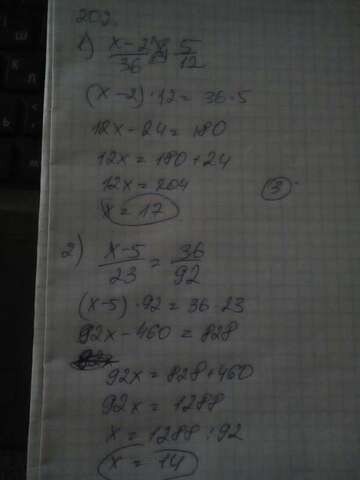 202.
1) x-2/36 = 5/12
(x-2)·12 = 36·5
12x-24 = 180
12x = 180+24
12x = 204
x = 17
3
2) x-5/23 = 36/92
(x-5)·92 = 36·23
92x-460 = 828
92x = 828+460
92x = 1288
x = 1288:92
x = 14